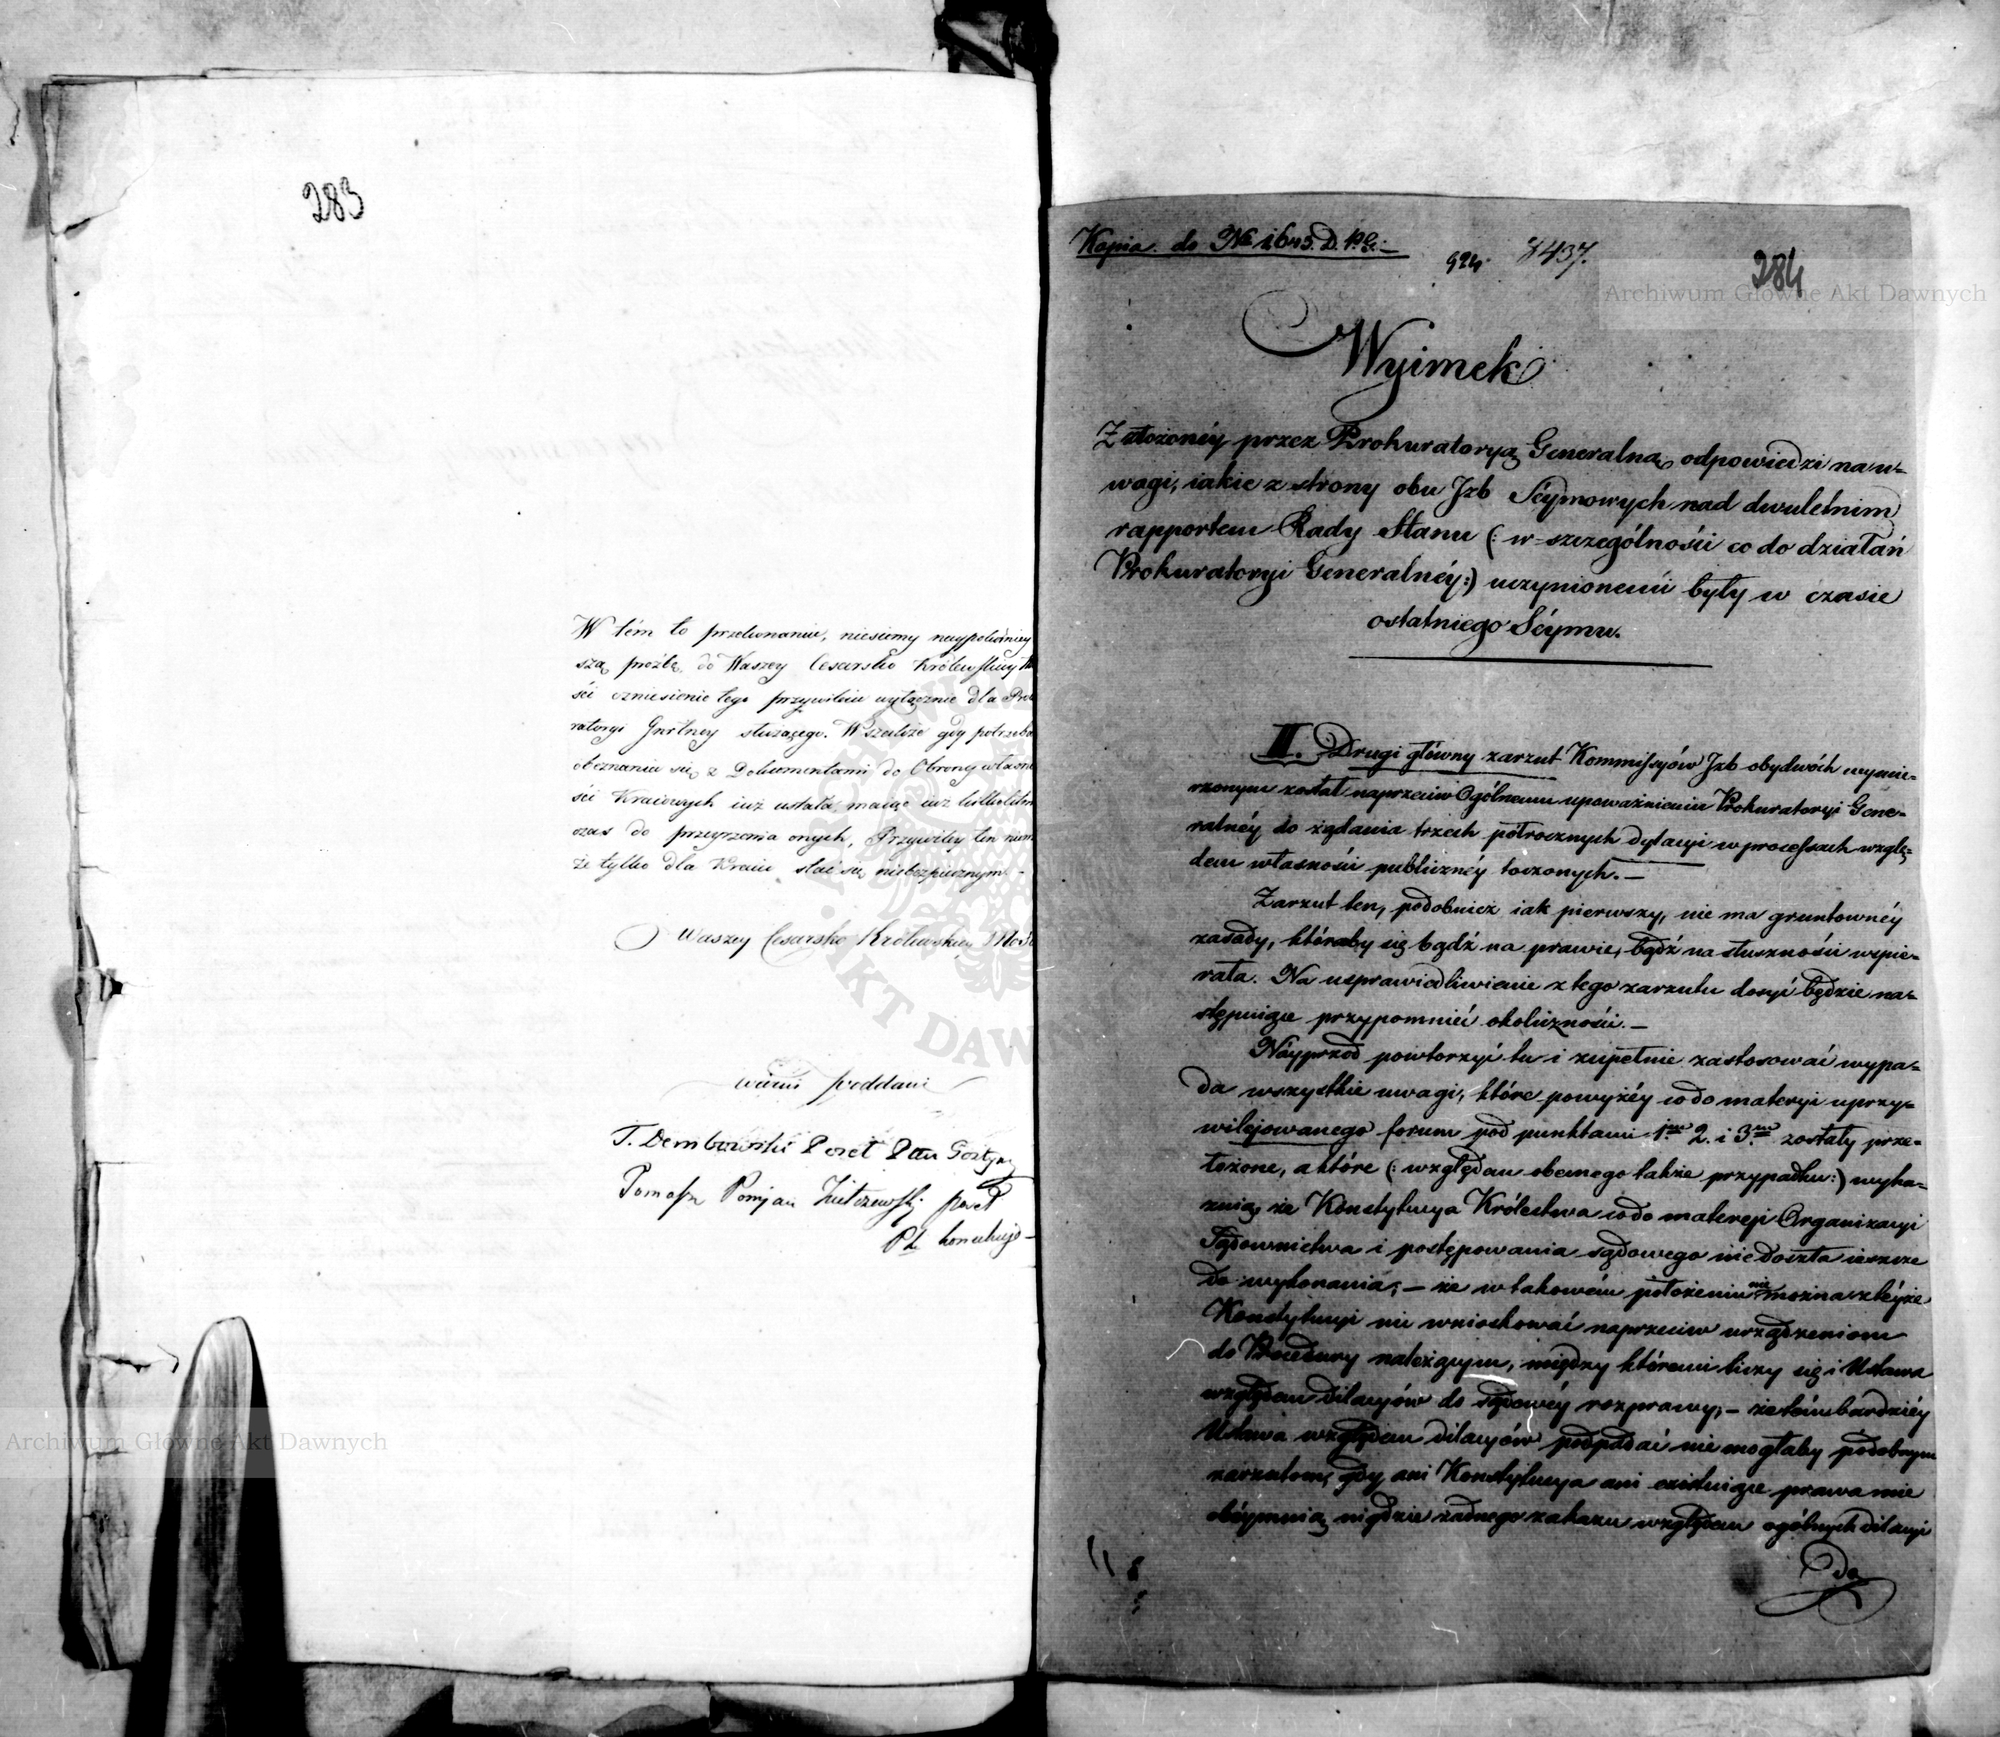 283
W tém to przekonaniu, niesiemy naypokorniey
szą proźbę do Waszey Cesarsko Królewskiey M
ści zniesienie tego przywileiu wyłącznie dla Pro
ratoryi Gnrlney służącego. Wszakże gdy potrzeba
obeznania się z Dokumentami do Obrony własno
ści Kraiowych iuż ustała, maiąc iuż kilkoletni
czas do przeyrzenia onych, Przywiley ten nie
że tylko dla Kraiu stać się niebezpiecznym. -
Waszey Cesarsko Królewskiey Mości
wierni poddani
T. Dembowski Poseł Ptu Gostyń
Tomasz Pomjan poseł
Ptu
Kopia do No 1645. D.
924. 8437.
284
Archiwum Główne Akt Dawnych
Wyimek
Z złożonéy przez Prokuratoryą Generalną odpowiedzi na u-
wagi, iakie z strony obu Izb Séymowych nad dwuletnim
rapportem Rady Stanu (: w szczególności co do działań
Prokuratoryi Generalnéy:) uczynionemi były w czasie
ostatniego Séymu.
II. Drugi główny zarzut Kommissyów Izb obydwóch wymie-
rzonym został naprzeciw Ogólnemu upoważnieniu Prokuratoryi Gene-
ralnéy do żądania trzech półrocznych dylacyi w processach wzglę-
dem własności publicznéy toczonych. —
Zarzut ten, podobnież iak pierwszy, nie ma gruntownéy
zasady, któraby się bądź na prawie, bądź na słuszności wspie-
rała. Na usprawiedliwienie z tego zarzutu dosyć będzie na-
stępuiące przypomnieć okoliczności. —
Náyprzod powtorzyć tu i zupełnie zastosować wypa-
da wszystkie uwagi, które powyżéy co do materyi uprzy-
wilejowanego forum pod punktami 1m 2. i 3m zostały prze-
łożone, a które (: względem obecnego także przypadku:) wyka-
znią, że Konstytucya Królestwa co do materyi Organizacyi
Sądownictwa i postępowania sądowego nie doszła ieszcze
do wykonania; — że w takowém położeniu nie można z téyże
Konstytucyi nic wnioskować naprzeciw urządzeniom
do Procedury należącym, między któremi liczy się i Ustawa
względem dilacyów do sądowéy rozprawy; — że tém bardziéy
Ustawa względem dilacyów podpadać nie mogłaby podobnym
zarzutom, gdy ani Konstytucya ani exystuiące prawa nie
obéymuią nigdzie żadnego zakazu względem ogólnych dilacyi
do
ARCHIWUM
AKT DAWN
Archiwum Główne Akt Dawnych